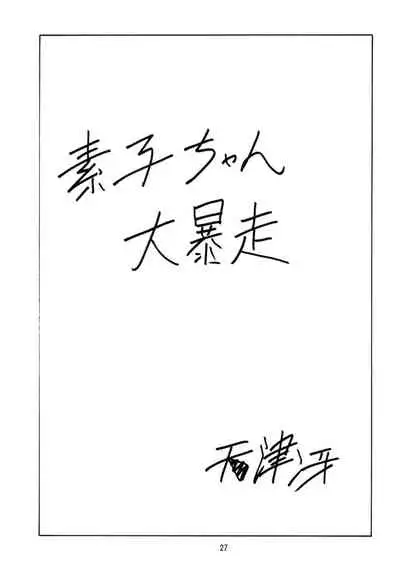 素子ちゃん
大暴走
天津冴
27